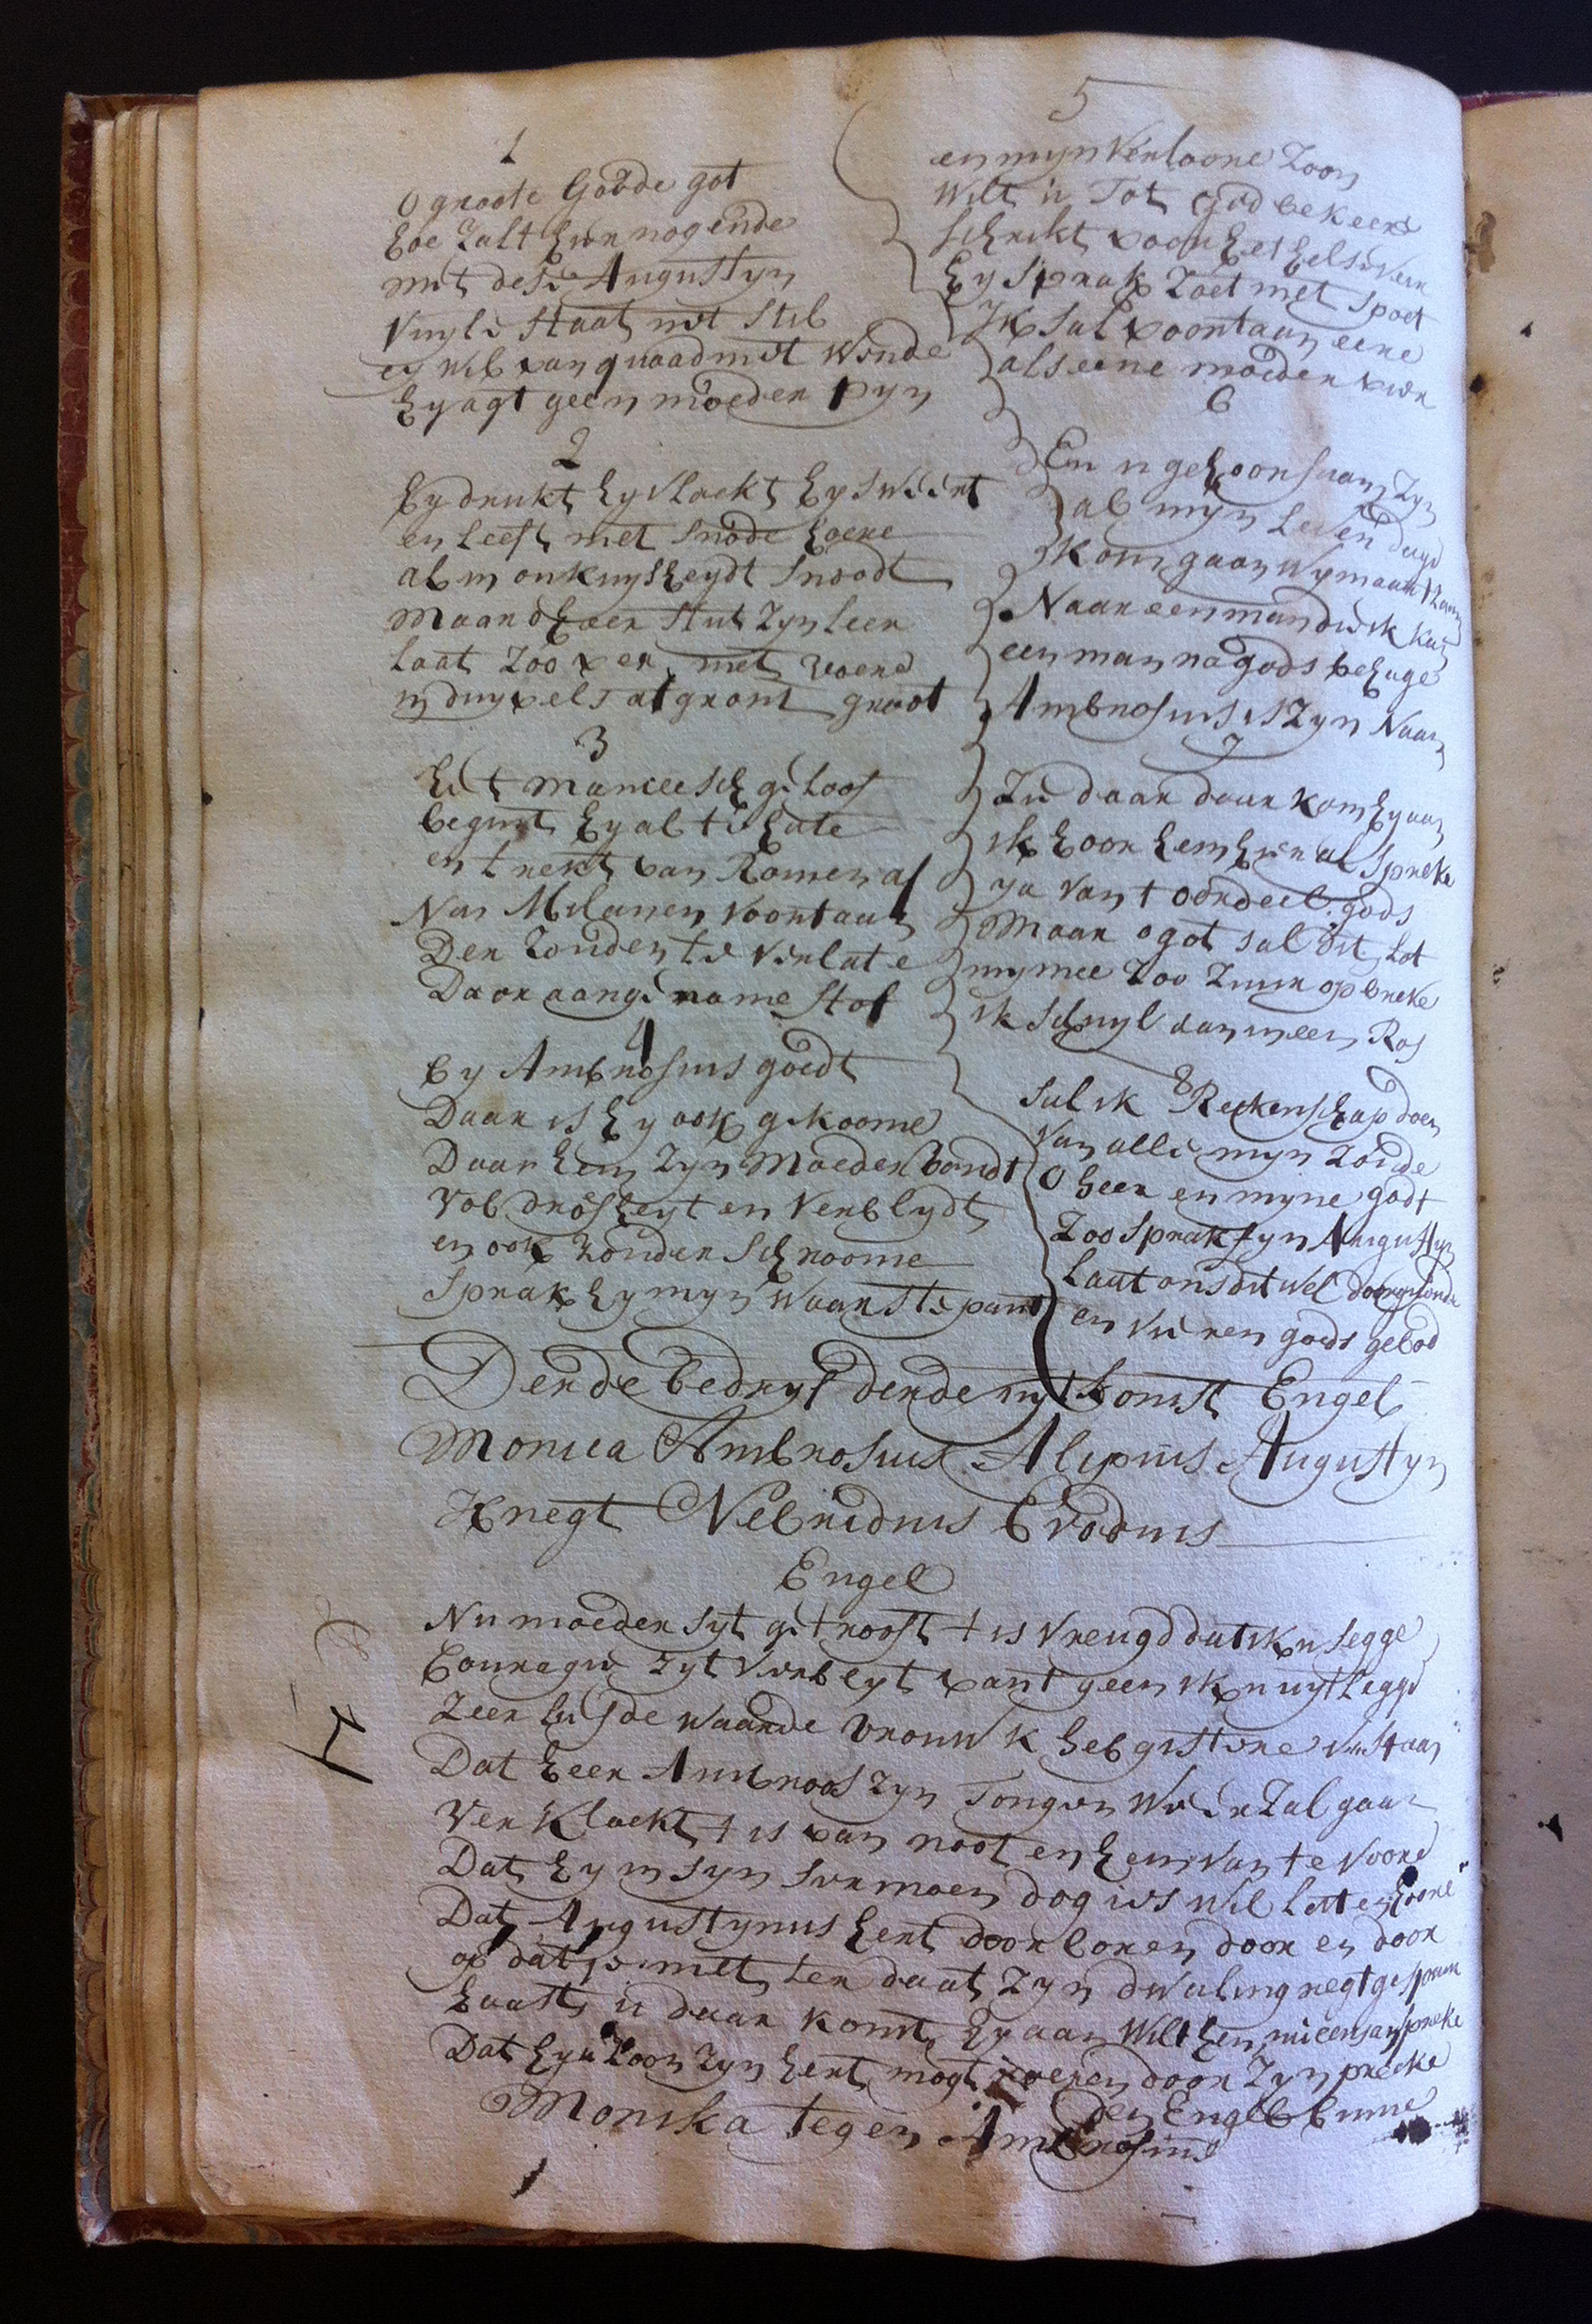 1
O groote Goode got
hoe zalt hier nog ende
met dese Augustyn
Vuyle staat met stil
ey wil van quaad niet wende
hy agt geen moeder pyn
2
hy drukt hy vloekt hy sweert
en leeft met snode hoere
al in onkuysheydt snoodt
maar dheer stut zyn leer
laat zoo ver niet voere
in duyvels afgront groot
3
het maniceesch geloof
begint hy al te hate
en trekt van Romen af
Nar Milanen voortaan
Der zonden te verlate
Daor aangename stof
4
by Ambrosius goedt
Daar is hy ook gekoome
Daar hem zyn moeder vandt
vol drosheyt en verblydt
en ook zonder schroome
sprak hy myn waarste pant
5
en myn verloore zoon
wilt u Tot god bekeere
schrikt voor het hels
hy sprak zoet met spoet
Ik sal voortaan eere
als eene moeder
6
En u gehoorsaam zyn
al myn leven
kom gaan wy maar
Naar een man die ik
een man na gods behage
Ambrosius is zyn Naam
7
Zie daar daar kom hy aan
ik hoor hem hier al spreke
ya van t oordeel gods
Maar o got sal dit lot
my mee zoo zuur opbreke
ik schuyl dan in een Ros
8
sal ik Reekenschap doen
van alle myn zonde
O heer en myne godt
Zoo sprak fyn Augustyn
laat ons dit wel doorgronde
en vieren gods gebod
Derde bedryf derde uytkomst Engel
Monica Ambrosius Alipius Augustyn
Knegt Nebridius Evodius
Engel
Nu moeder syt getroost t is vreugd dat ik u segge
Couragie zyt verblyt want geen ik u uytlegge
Zeer liefde waarde vrouw k heb gistere verstaan
Dat heer Ambroos zyn Tonge weer zal gaan
Ver klaekt t is van noot en hem van te voore
Dat hy in syn sermoen dog iets wil laten hoore
Dat Augustynus hert doorboren door en door
op dat met ter daat zyn dwaling regt
haast u daar komt hy aan wilt hem aenspreke
Dat hy u zoon zyn hert mogt roeren door zyn preeke
den Engel binne
Monika tegen Ambrosius